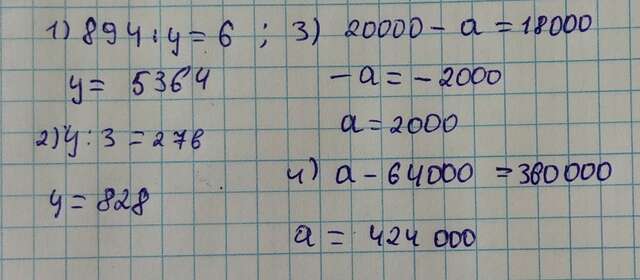 1) 894 : y = 6 ;
y = 5364
2) y : 3 = 276
y = 828
3) 20000 - a = 18000
- a = - 2000
a = 2000
4) a - 64000 = 360000
a = 424 000